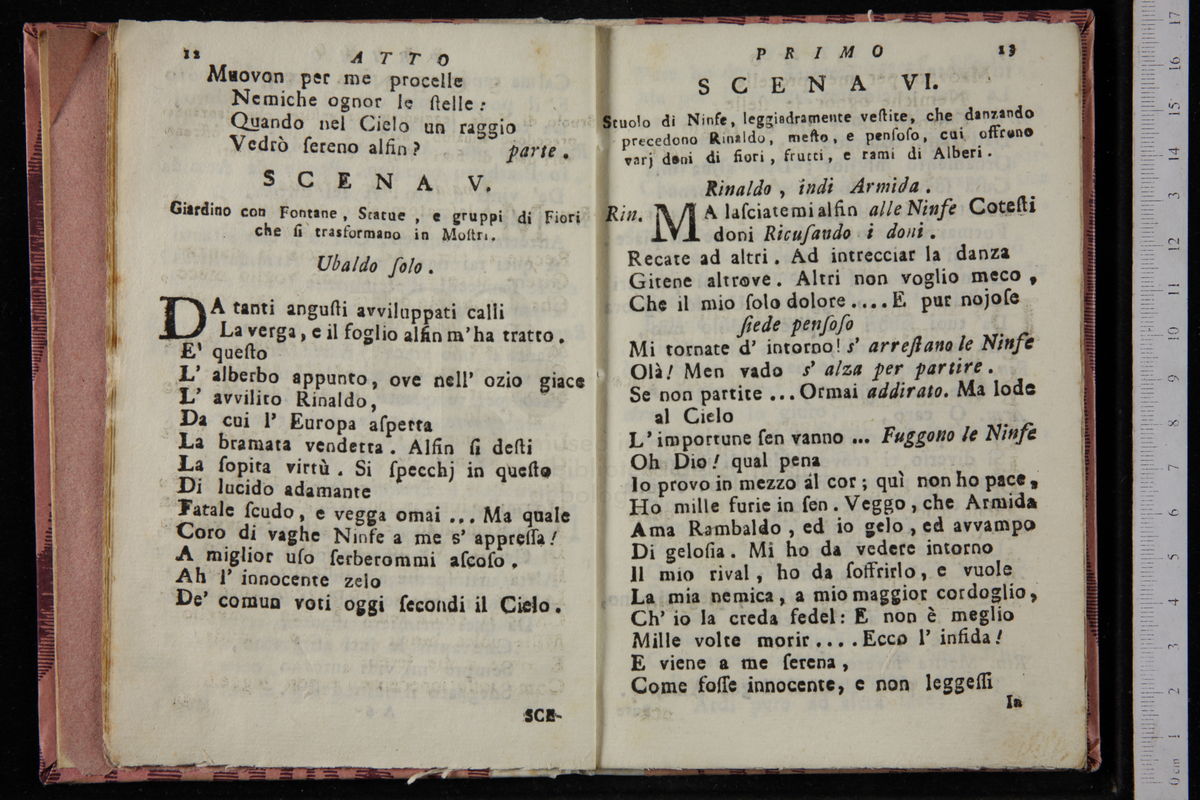 12
ATTO
Muovon per me procelle
Nemiche ognor le ſtelle:
Quando nel Cielo un raggio
Vedrò ſereno alfin? parte.
SCENA V.
Giardino con Fontane, Statue, e gruppi di Fiori
che ſi trasformano in Moſtri.
Ubaldo ſolo.
DA tanti anguſti avviluppati calli
La verga, e il foglio alfin m'ha tratto.
E' queſto
L' alberbo appunto, ove nell' ozio giace
L' avvilito Rinaldo,
Da cui l' Europa aſpetta
La bramata vendetta. Alfin ſi deſti
La ſopita virtù. Si ſpecchj in queſto
Di lucido adamante
Fatale ſcudo, e vegga omai ... Ma quale
Coro di vaghe Ninfe a me s' appreſſa!
A miglior uſo ſerberommi aſcoſo.
Ah l' innocente zelo
De' comun voti oggi ſecondi il Cielo.
SCE-
PRIMO
13
SCENA VI.
Stuolo di Ninfe, leggiadramente veſtite, che danzando
precedono Rinaldo, meſto, e penſoſo, cui offrono
varj doni di fiori, frutti, e rami di Alberi.
Rinaldo, indi Armida.
Rin. MA laſciatemi alfin alle Ninfe Coteſti
doni Ricuſando i doni.
Recate ad altri. Ad intrecciar la danza
Gitene altrove. Altri non voglio meco,
Che il mio ſolo dolore .... E pur nojoſe
ſiede penſoſo
Mi tornate d' intorno! s' arreſtano le Ninfe
Olà! Men vado s' alza per partire.
Se non partite ... Ormai addirato. Ma lode
al Cielo
L' importune ſen vanno ... Fuggono le Ninfe
Oh Dio! qual pena
Io provo in mezzo ál cor; quì non ho pace,
Ho mille furie in ſen. Veggo, che Armida
Ama Rambaldo, ed io gelo, ed avvampo
Di geloſia. Mi ho da vedere intorno
Il mio rival, ho da ſoffrirlo, e vuole
La mia nemica, a mio maggior cordoglio,
Ch' io la creda fedel: E non è meglio
Mille volte morir .... Ecco l' infida!
E viene a me ſerena,
Come foſſe innocente, e non leggeſſi
In